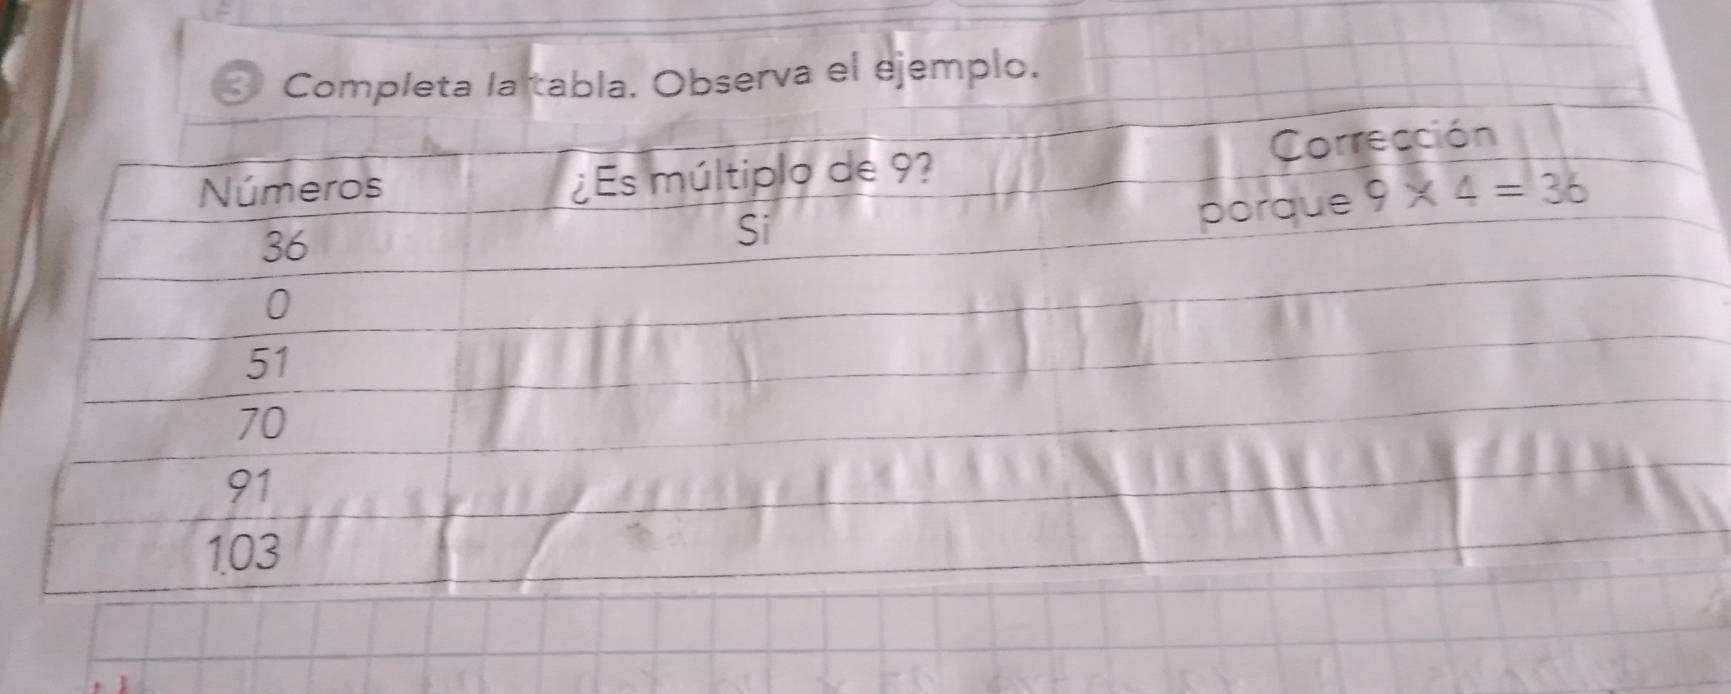 3 Completa la tabla. Observa el ejemplo.
Números ¿Es múltiplo de 9? Corrección
36 Si porque 9 × 4 = 36
0
51
70
91
103